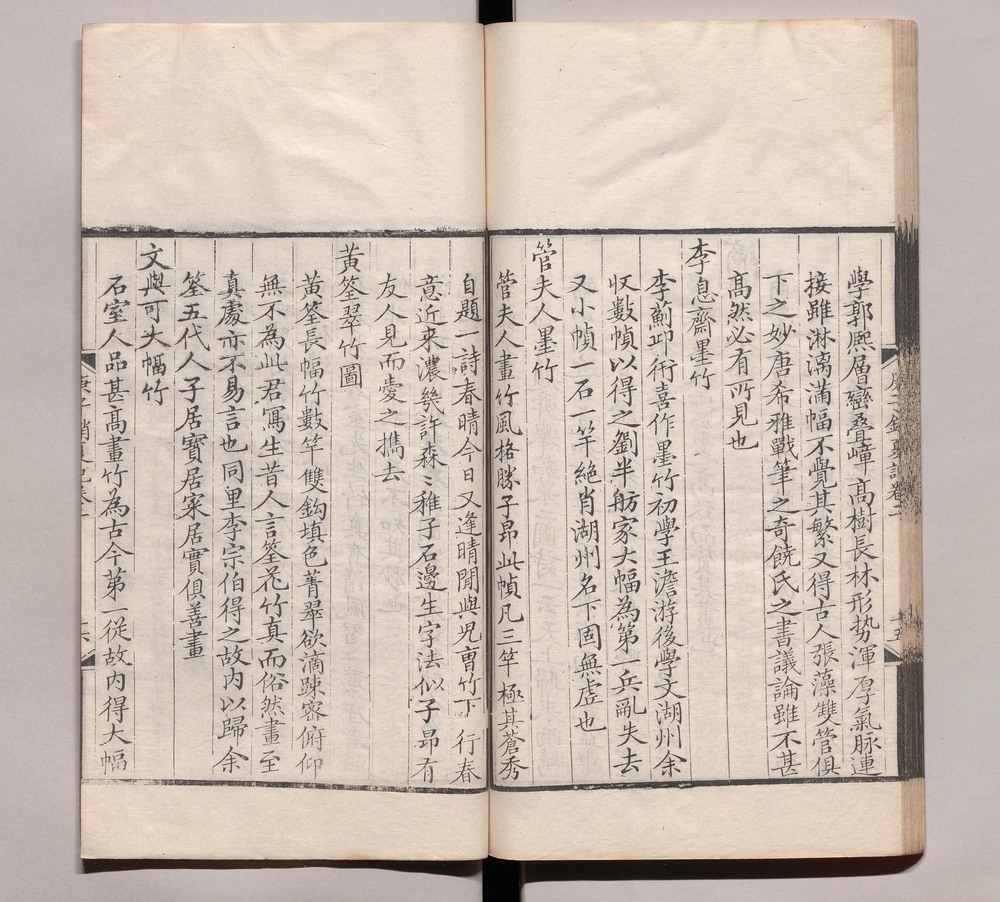 學郭熈層巒叠嶂高樹長林形势渾厚氣脉連
接雖淋漓滿幅不覺其繁又得古人張藻雙管俱
下之妙唐希雅戰筆之奇饒氏之書議論雖不甚
高然必有所見也
李息齋墨竹
李薊邱衎喜作墨竹初學王澹游後學文湖州余
収數幀以得之劉半舫家大幅為第一兵亂失去
又小幀一石一竿絶肖湖州名下固無虚也
管夫人墨竹
管夫人畫竹風格勝子昂此幀凡三竿極其蒼秀
自題一詩春晴今日又逢晴閒與兒曹竹下行春
意近來濃幾許森々稚子石邊生字法似子昂有
友人見而愛之攜去
黄筌翠竹圖
黄筌長幅竹數竿雙鈎填色菁翠欲滴踈宻俯仰
無不為此君寫生昔人言筌花竹真而俗然畫至
真䖏亦不易言也同里李宗伯得之故内以歸余
筌五代人子居寳居寀居實俱善畫
文與可大幅竹
石室人品甚高畫竹為古今第一從故内得大幅